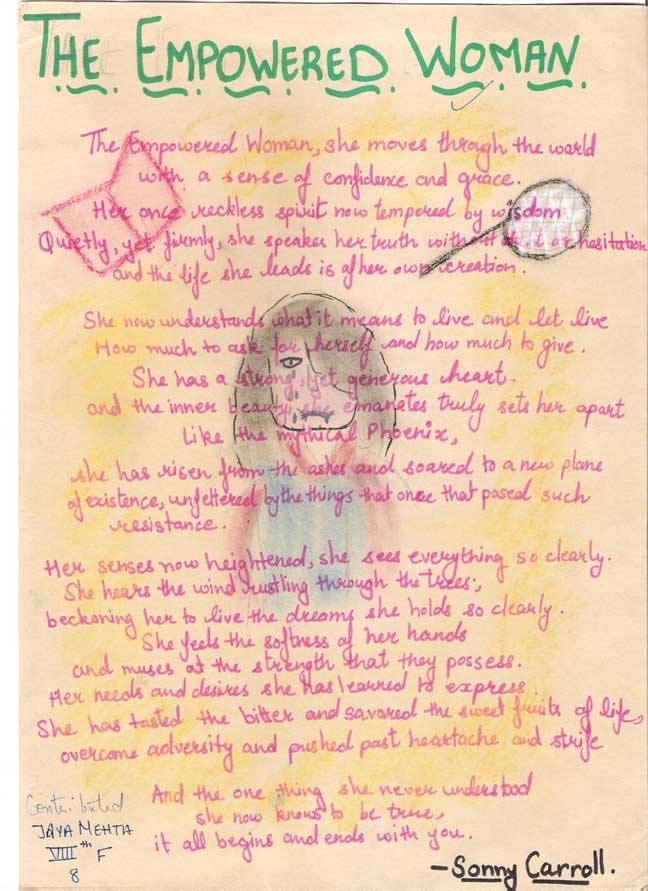 THE EMPOWERED WOMAN
The Empowered Woman, she moves through the world
with a sense of confidence and grace.
Her once reckless spirit now tempered by wisdom.
Quietly, yet firmly, she speaks her truth without or hesitation
and the life she leads is of her own creation.
She now understands what it means to live and let live
How much to ask for herself and how much to give.
She has a strong, yet generous heart.
and the inner beauty she emanates truly sets her apart
Like the mythical Phoenix,
she has risen from the ashes and soared to a new plane
of existence, unfettered by the things that once that posed such
resistance.
Her senses now heightened, she sees everything so clearly.
She hears the wind rustling through the trees;
beckoning her to live the dreams she holds so clearly.
She feels the softness of her hands
and muses at the strength that they possess.
Her needs and desires she has learned to express
She has tasted the bitter and savored the sweet fruits of life,
overcome adversity and pushed past heartache and strife
And the one thing she never understood
she now knows to be true,
it all begins and ends with you.
-Sonny Carroll.
Contributed
JAYA MEHTA
VIIIth F
8